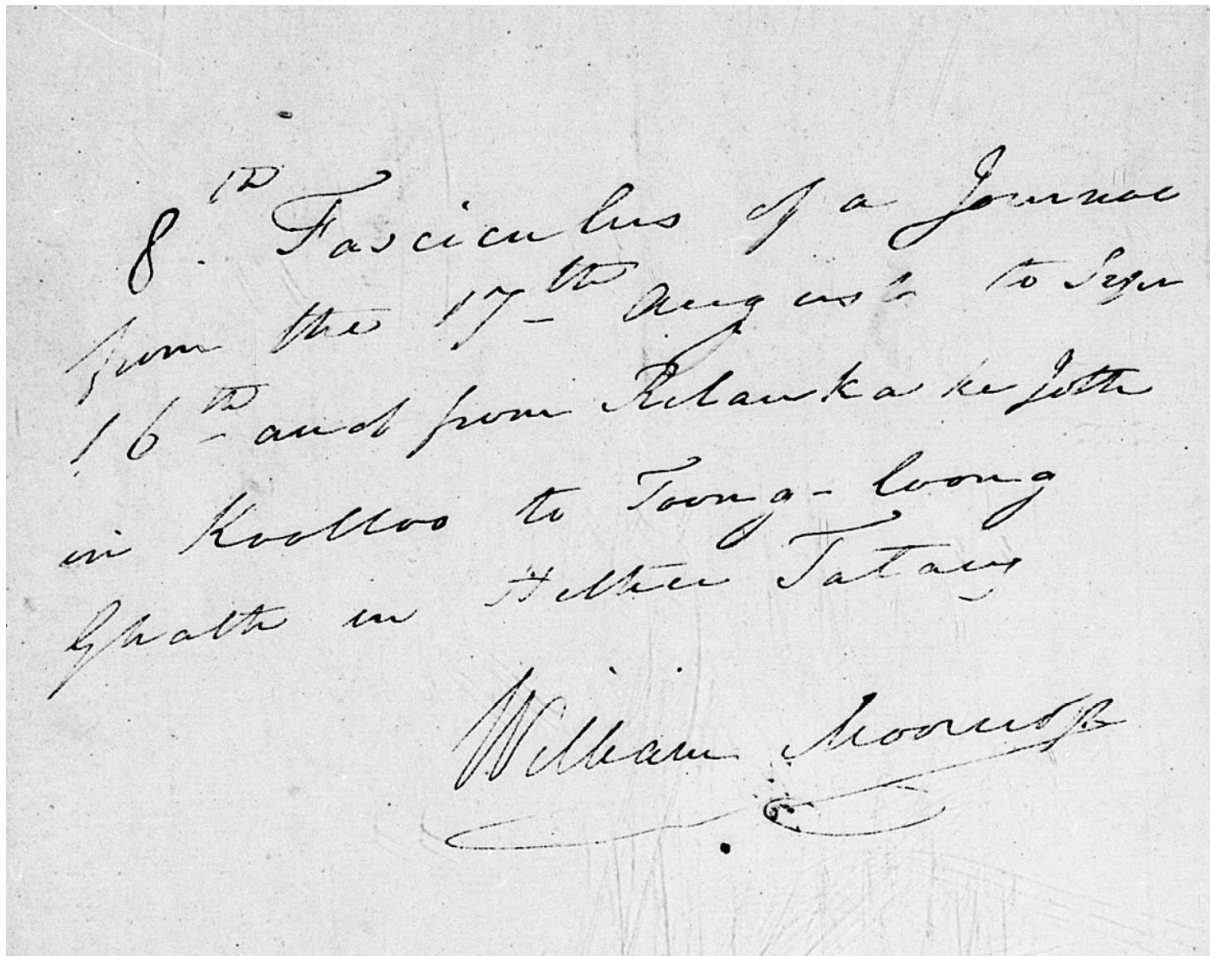 8th Fasciculus of a Journal
from the 17th August to Sepr
16th and from Relanka ke Joth
in Koolloo to Toong-loong
Ghath in Tatary
William Moorcroft